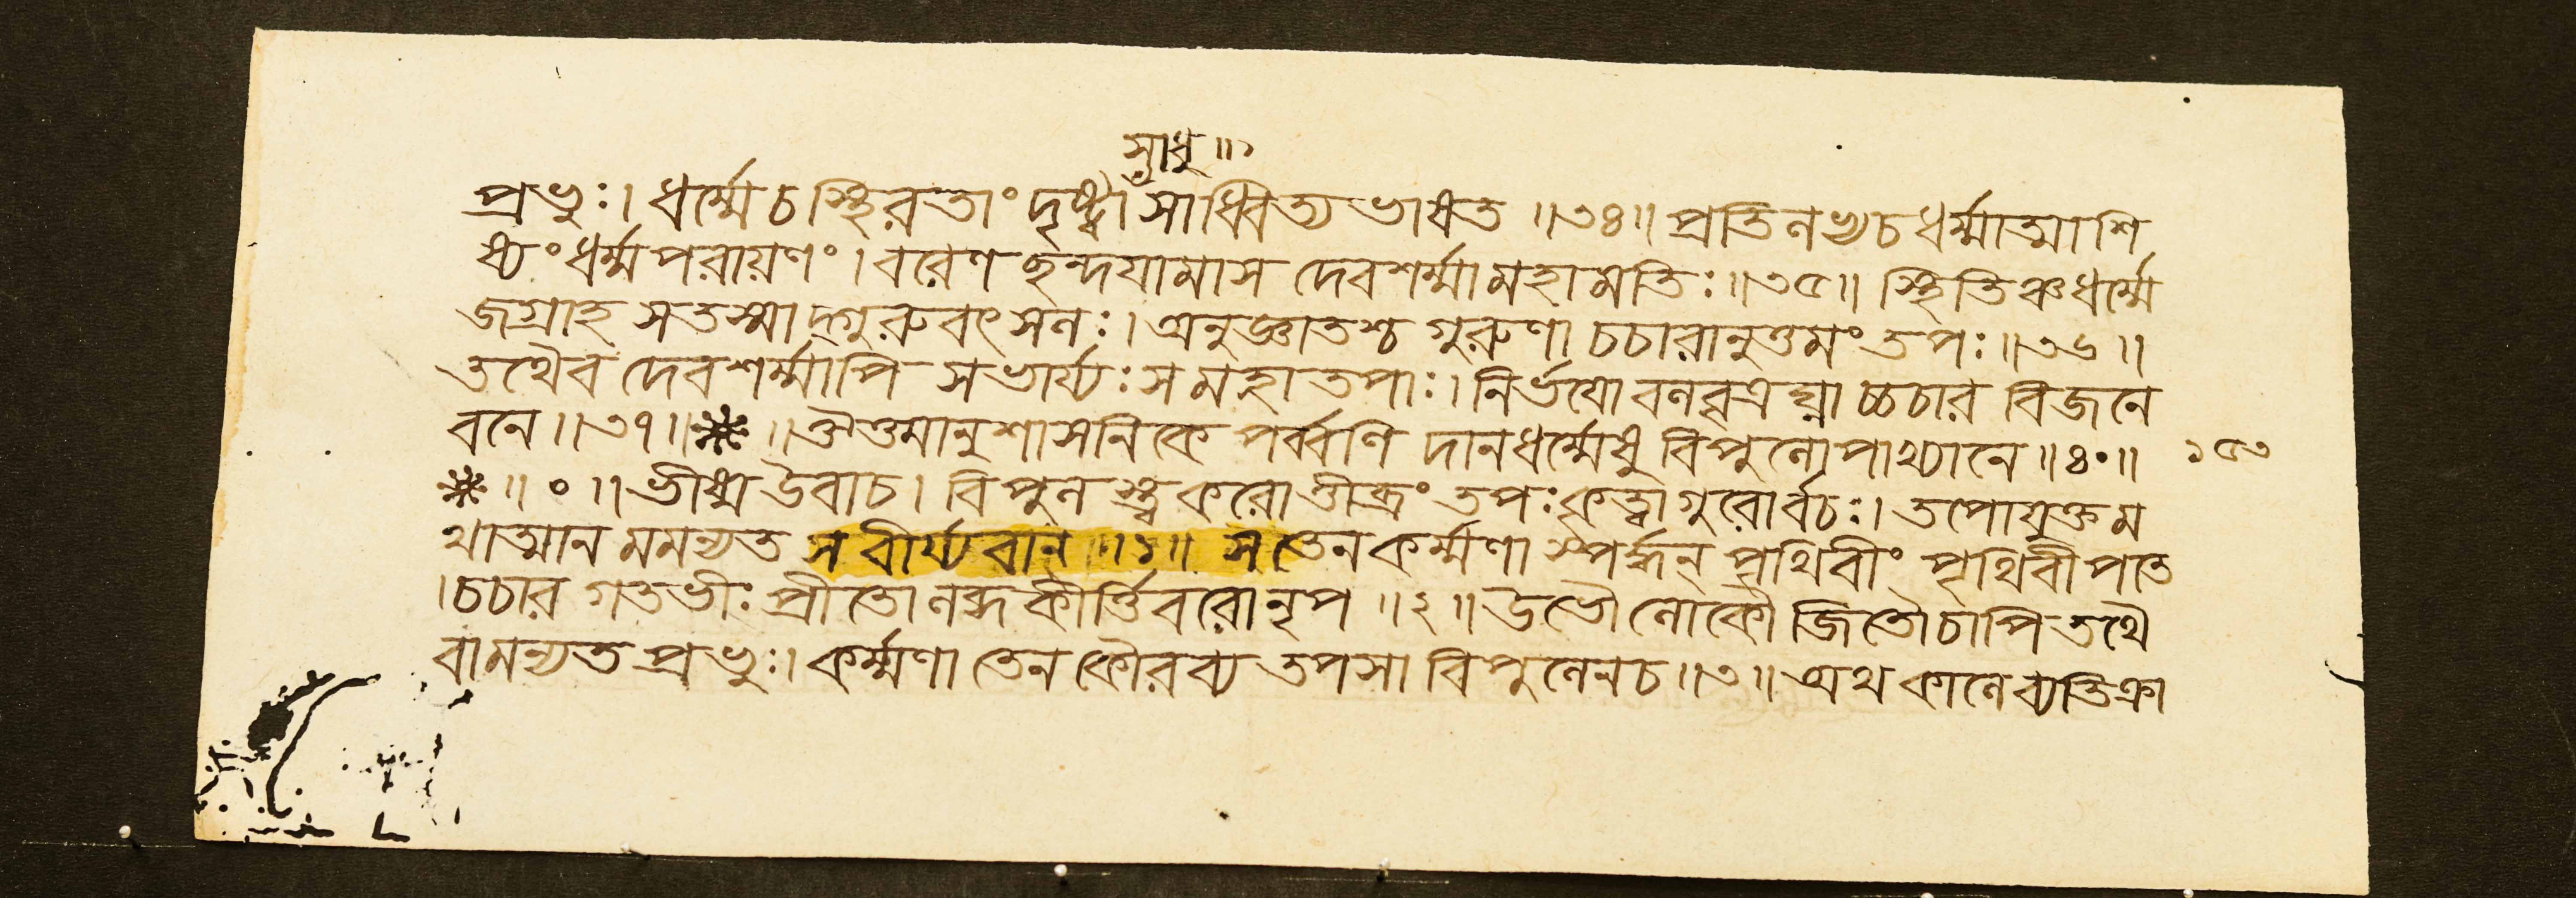 সাধু ॥১
প্রভুঃ। ধর্ম্মে চ স্থিরতাং দৃষ্ট্বা সাধ্বিত্যভাষত ॥৩৪॥ প্রতিনন্দ্য চ ধর্ম্মাত্মা শি
ষ্যং ধর্ম্মপরায়ণং। বরেণ ছন্দযামাস দেবশর্ম্মা মহামতিঃ॥৩৫॥ স্থিতিঞ্চ ধর্ম্মে
জগ্রাহ স তস্মাদ্গুরুবৎসলঃ। অনুজ্ঞাতশ্চ গুরুণা চচারানুত্তমং তপঃ॥৩৬॥
তথৈব দেবশর্ম্মাপি সভার্য্যঃ স মহাতপাঃ। নির্ভযো বলবৃত্রঘ্নাচ্চচার বিজনে
বনে॥৩৭॥ * ॥ঔত্তমানুশাসনিকে পর্ব্বণি দানধর্ম্মেষু বিপুলোপাখ্যানে॥৪০॥ ১৫৩
* ॥ ০ ॥ ভীষ্ম উবাচ। বিপুলস্ত্বকরোত্তীব্রং তপঃ কৃত্বা গুরোর্বচঃ। তপোযুক্তম
থাত্মানমমন্যত স বীর্য্যবান্ ॥১॥ স তেন কর্ম্মণা স্পর্দ্ধন্ পৃথিবীং পৃথিবীপতে
।চচার গতভীঃ প্রীতো লব্ধকীর্ত্তিবরো নৃপ ॥২॥ উভৌ লোকৌ জিতৌ চাপি তথৈ
বামন্যত প্রভুঃ। কর্ম্মণা তেন কৌরব্য তপসা বিপুলেন চ॥৩॥ অথ কালে ব্যতিক্রা